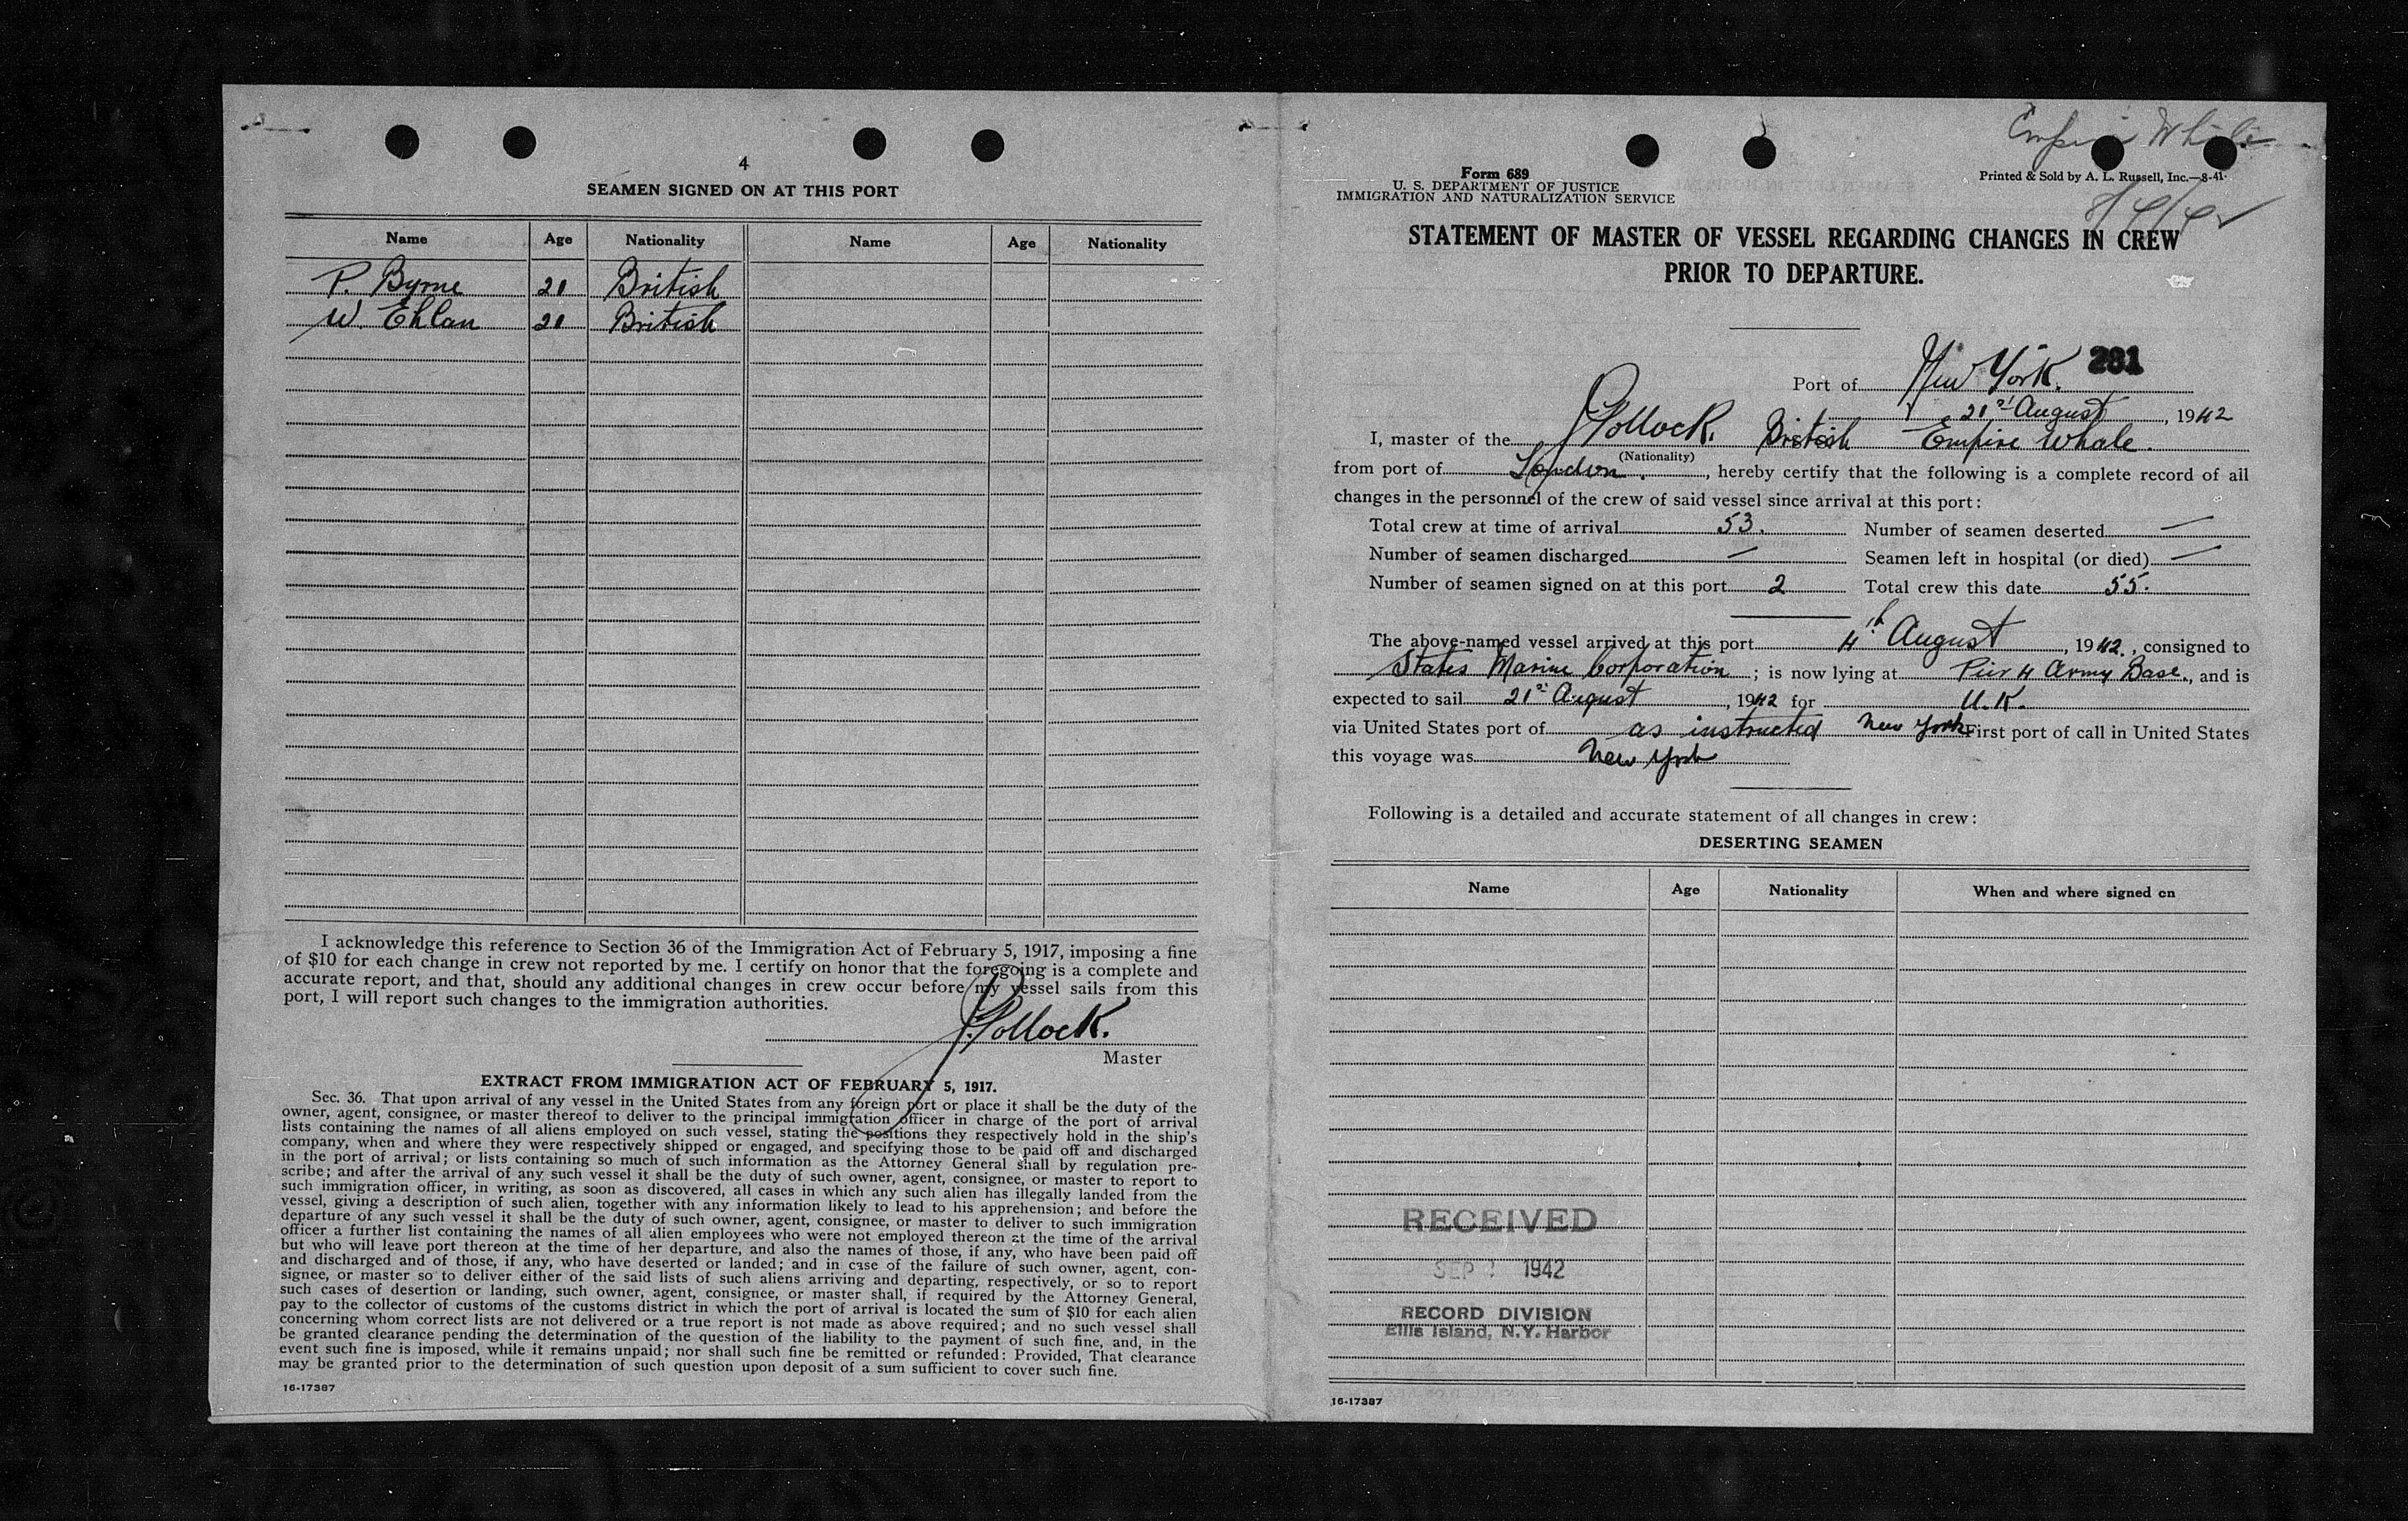 4
SEAMEN SIGNED ON AT THIS PORT
Name Age Nationality Name Age Nationality
P. Byrne 20 British
W. Ehlan 20 British
I acknowledge this reference to Section 36 of the Immigration Act of February 5, 1917, imposing a fine
of $10 for each change in crew not reported by me. I certify on honor that the foregoing is a complete and
accurate report, and that, should any additional changes in crew occur before my vessel sails from this
port, I will report such changes to the immigration authorities.
J. Pollock.
Master
EXTRACT FROM IMMIGRATION ACT OF FEBRUARY 5, 1917.
Sec. 36. That upon arrival of any vessel in the United States from any foreign port or place it shall be the duty of the
owner, agent, consignee, or master thereof to deliver to the principal immigration officer in charge of the port of arrival
lists containing the names of all aliens employed on such vessel, stating the positions they respectively hold in the ship's
company, when and where they were respectively shipped or engaged, and specifying those to be paid off and discharged
in the port of arrival; or lists containing so much of such information as the Attorney General shall by regulation pre-
scribe; and after the arrival of any such vessel it shall be the duty of such owner, agent, consignee, or master to report to
such immigration officer, in writing, as soon as discovered, all cases in which any such alien has illegally landed from the
vessel, giving a description of such alien, together with any information likely to lead to his apprehension; and before the
departure of any such vessel it shall be the duty of such owner, agent, consignee, or master to deliver to such immigration
officer a further list containing the names of all alien employees who were not employed thereon at the time of the arrival
but who will leave port thereon at the time of her departure, and also the names of those, if any, who have been paid off
and discharged and of those, if any, who have deserted or landed; and in case of the failure of such owner, agent, con-
signee, or master so to deliver either of the said lists of such aliens arriving and departing, respectively, or so to report
such cases of desertion or landing, such owner, agent, consignee, or master shall, if required by the Attorney General,
pay to the collector of customs of the customs district in which the port of arrival is located the sum of $10 for each alien
concerning whom correct lists are not delivered or a true report is not made as above required; and no such vessel shall
be granted clearance pending the determination of the question of the liability to the payment of such fine, and, in the
event such fine is imposed, while it remains unpaid; nor shall such fine be remitted or refunded: Provided, That clearance
may be granted prior to the determination of such question upon deposit of a sum sufficient to cover such fine.
16-17387
Empire Whale
Form 689
U. S. DEPARTMENT OF JUSTICE
IMMIGRATION AND NATURALIZATION SERVICE
Printed & Sold by A. L. Russell, Inc.—8-41.
8/4/42
STATEMENT OF MASTER OF VESSEL REGARDING CHANGES IN CREW
PRIOR TO DEPARTURE.
281
Port of New York.
21st August, 1942
I, master of the J Pollock. British Empire Whale.
(Nationality)
from port of London., hereby certify that the following is a complete record of all
changes in the personnel of the crew of said vessel since arrival at this port:
Total crew at time of arrival 53. Number of seamen deserted —
Number of seamen discharged — Seamen left in hospital (or died) —
Number of seamen signed on at this port 2 Total crew this date 55.
The above-named vessel arrived at this port 4th August, 1942., consigned to
States Marine Corporation; is now lying at Pier 4 Army Base., and is
expected to sail 21st August, 1942 for U.K.
via United States port of as instructed New York First port of call in United States
this voyage was New York
Following is a detailed and accurate statement of all changes in crew:
DESERTING SEAMEN
Name Age Nationality When and where signed on
RECEIVED
SEP 1942
RECORD DIVISION
Ellis Island, N.Y. Harbor
16-17387